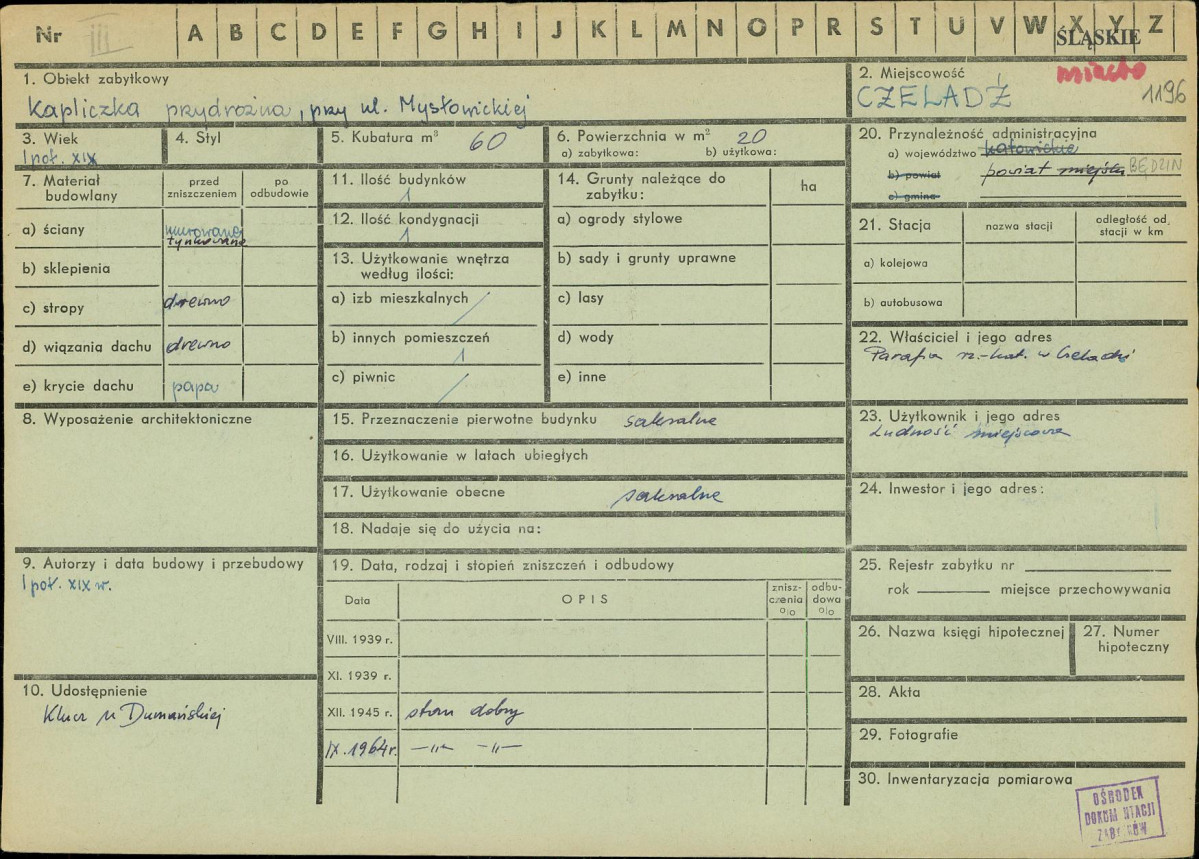 Nr III A B C D E F G H I J K L M N O P R S T U V W X Y Z
ŚLĄSKIE
1. Obiekt zabytkowy
Kapliczka przydrożna, przy ul. Mysłowickiej
2. Miejscowość
miasto
CZELADŹ
1196
3. Wiek
I poł. XIX
4. Styl
5. Kubatura m³ 60
6. Powierzchnia w m² 20
a) zabytkowa: b) użytkowa:
7. Materiał budowlany
przed zniszczeniem
po odbudowie
a) ściany murowane
tynkowane
b) sklepienia
c) stropy drewno
d) wiązania dachu drewno
e) krycie dachu papa
8. Wyposażenie architektoniczne
9. Autorzy i data budowy i przebudowy
I poł. XIX w.
10. Udostępnienie
Klucz u Dumańskiej
11. Ilość budynków
1
12. Ilość kondygnacji
1
13. Użytkowanie wnętrza
według ilości:
a) izb mieszkalnych /
b) innych pomieszczeń
1
c) piwnic /
14. Grunty należące do
zabytku:
ha
a) ogrody stylowe
b) sady i grunty uprawne
c) lasy
d) wody
e) inne
15. Przeznaczenie pierwotne budynku sakralne
16. Użytkowanie w latach ubiegłych
17. Użytkowanie obecne sakralne
18. Nadaje się do użycia na:
19. Data, rodzaj i stopień zniszczeń i odbudowy
Data
OPIS
znisz-
czenia
%
odbu-
dowa
%
VIII. 1939 r.
XI. 1939 r.
XII. 1945 r. stan dobry
IX. 1964 r. —„— —„—
20. Przynależność administracyjna
a) województwo katowickie
b) powiat powiat miejski BĘDZIN
c) gmina
21. Stacja
nazwa stacji
odległość od
stacji w km
a) kolejowa
b) autobusowa
22. Właściciel i jego adres
Parafia rz.-kat. w Czeladzi
23. Użytkownik i jego adres
Ludność miejscowa
24. Inwestor i jego adres:
25. Rejestr zabytku nr
rok miejsce przechowywania
26. Nazwa księgi hipotecznej
27. Numer
hipoteczny
28. Akta
29. Fotografie
30. Inwentaryzacja pomiarowa
OŚRODEK
DOKUM NTACJI
ZAB KÓW